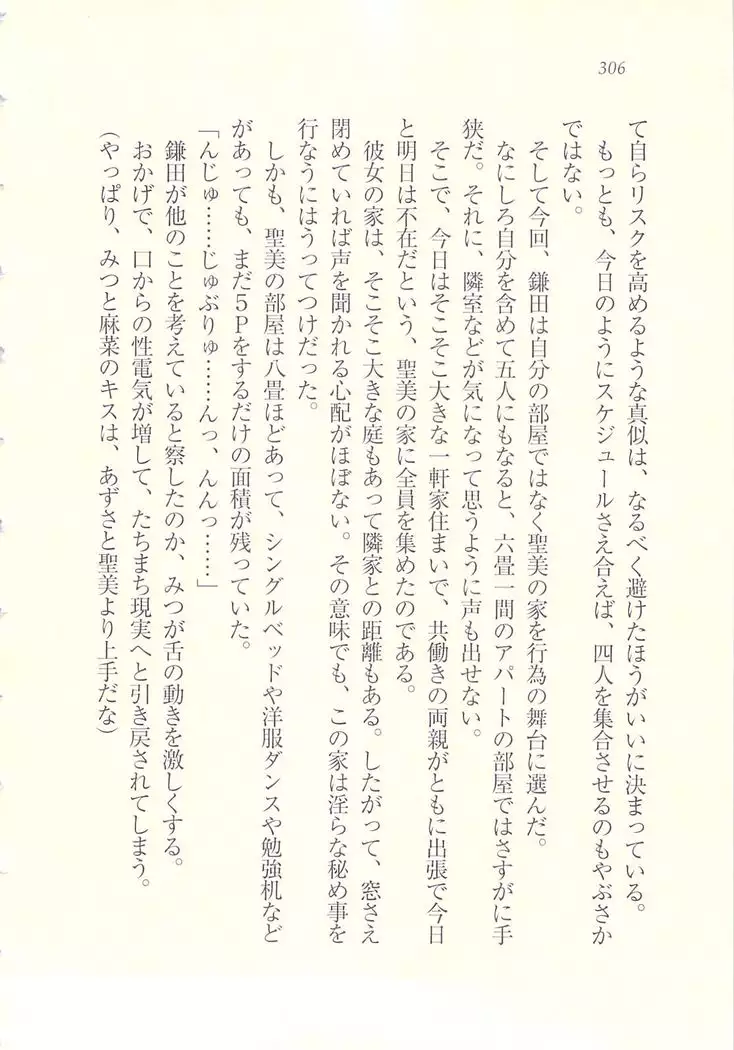 306
て自らリスクを高めるような真似は、なるべく避けたほうがいいに決まっている。
もっとも、今日のようにスケジュールさえ合えば、四人を集合させるのもやぶさか
ではない。
そして今回、鎌田は自分の部屋ではなく聖美の家を行為の舞台に選んだ。
なにしろ自分を含めて五人にもなると、六畳一間のアパートの部屋ではさすがに手
狭だ。それに、隣室などが気になって思うように声も出せない。
そこで、今日はそこそこ大きな一軒家住まいで、共働きの両親がともに出張で今日
と明日は不在だという、聖美の家に全員を集めたのである。
彼女の家は、そこそこ大きな庭もあって隣家との距離もある。したがって、窓さえ
閉めていれば声を聞かれる心配がほぼない。その意味でも、この家は淫らな秘め事を
行なうにはうってつけだった。
しかも、聖美の部屋は八畳ほどあって、シングルベッドや洋服ダンスや勉強机など
があっても、まだ5Pをするだけの面積が残っていた。
「んじゅ……じゅぶりゅ……んっ、んんっ……」
鎌田が他のことを考えていると察したのか、みつが舌の動きを激しくする。
おかげで、口からの性電気が増して、たちまち現実へと引き戻されてしまう。
(やっぱり、みつと麻菜のキスは、あずさと聖美より上手だな)